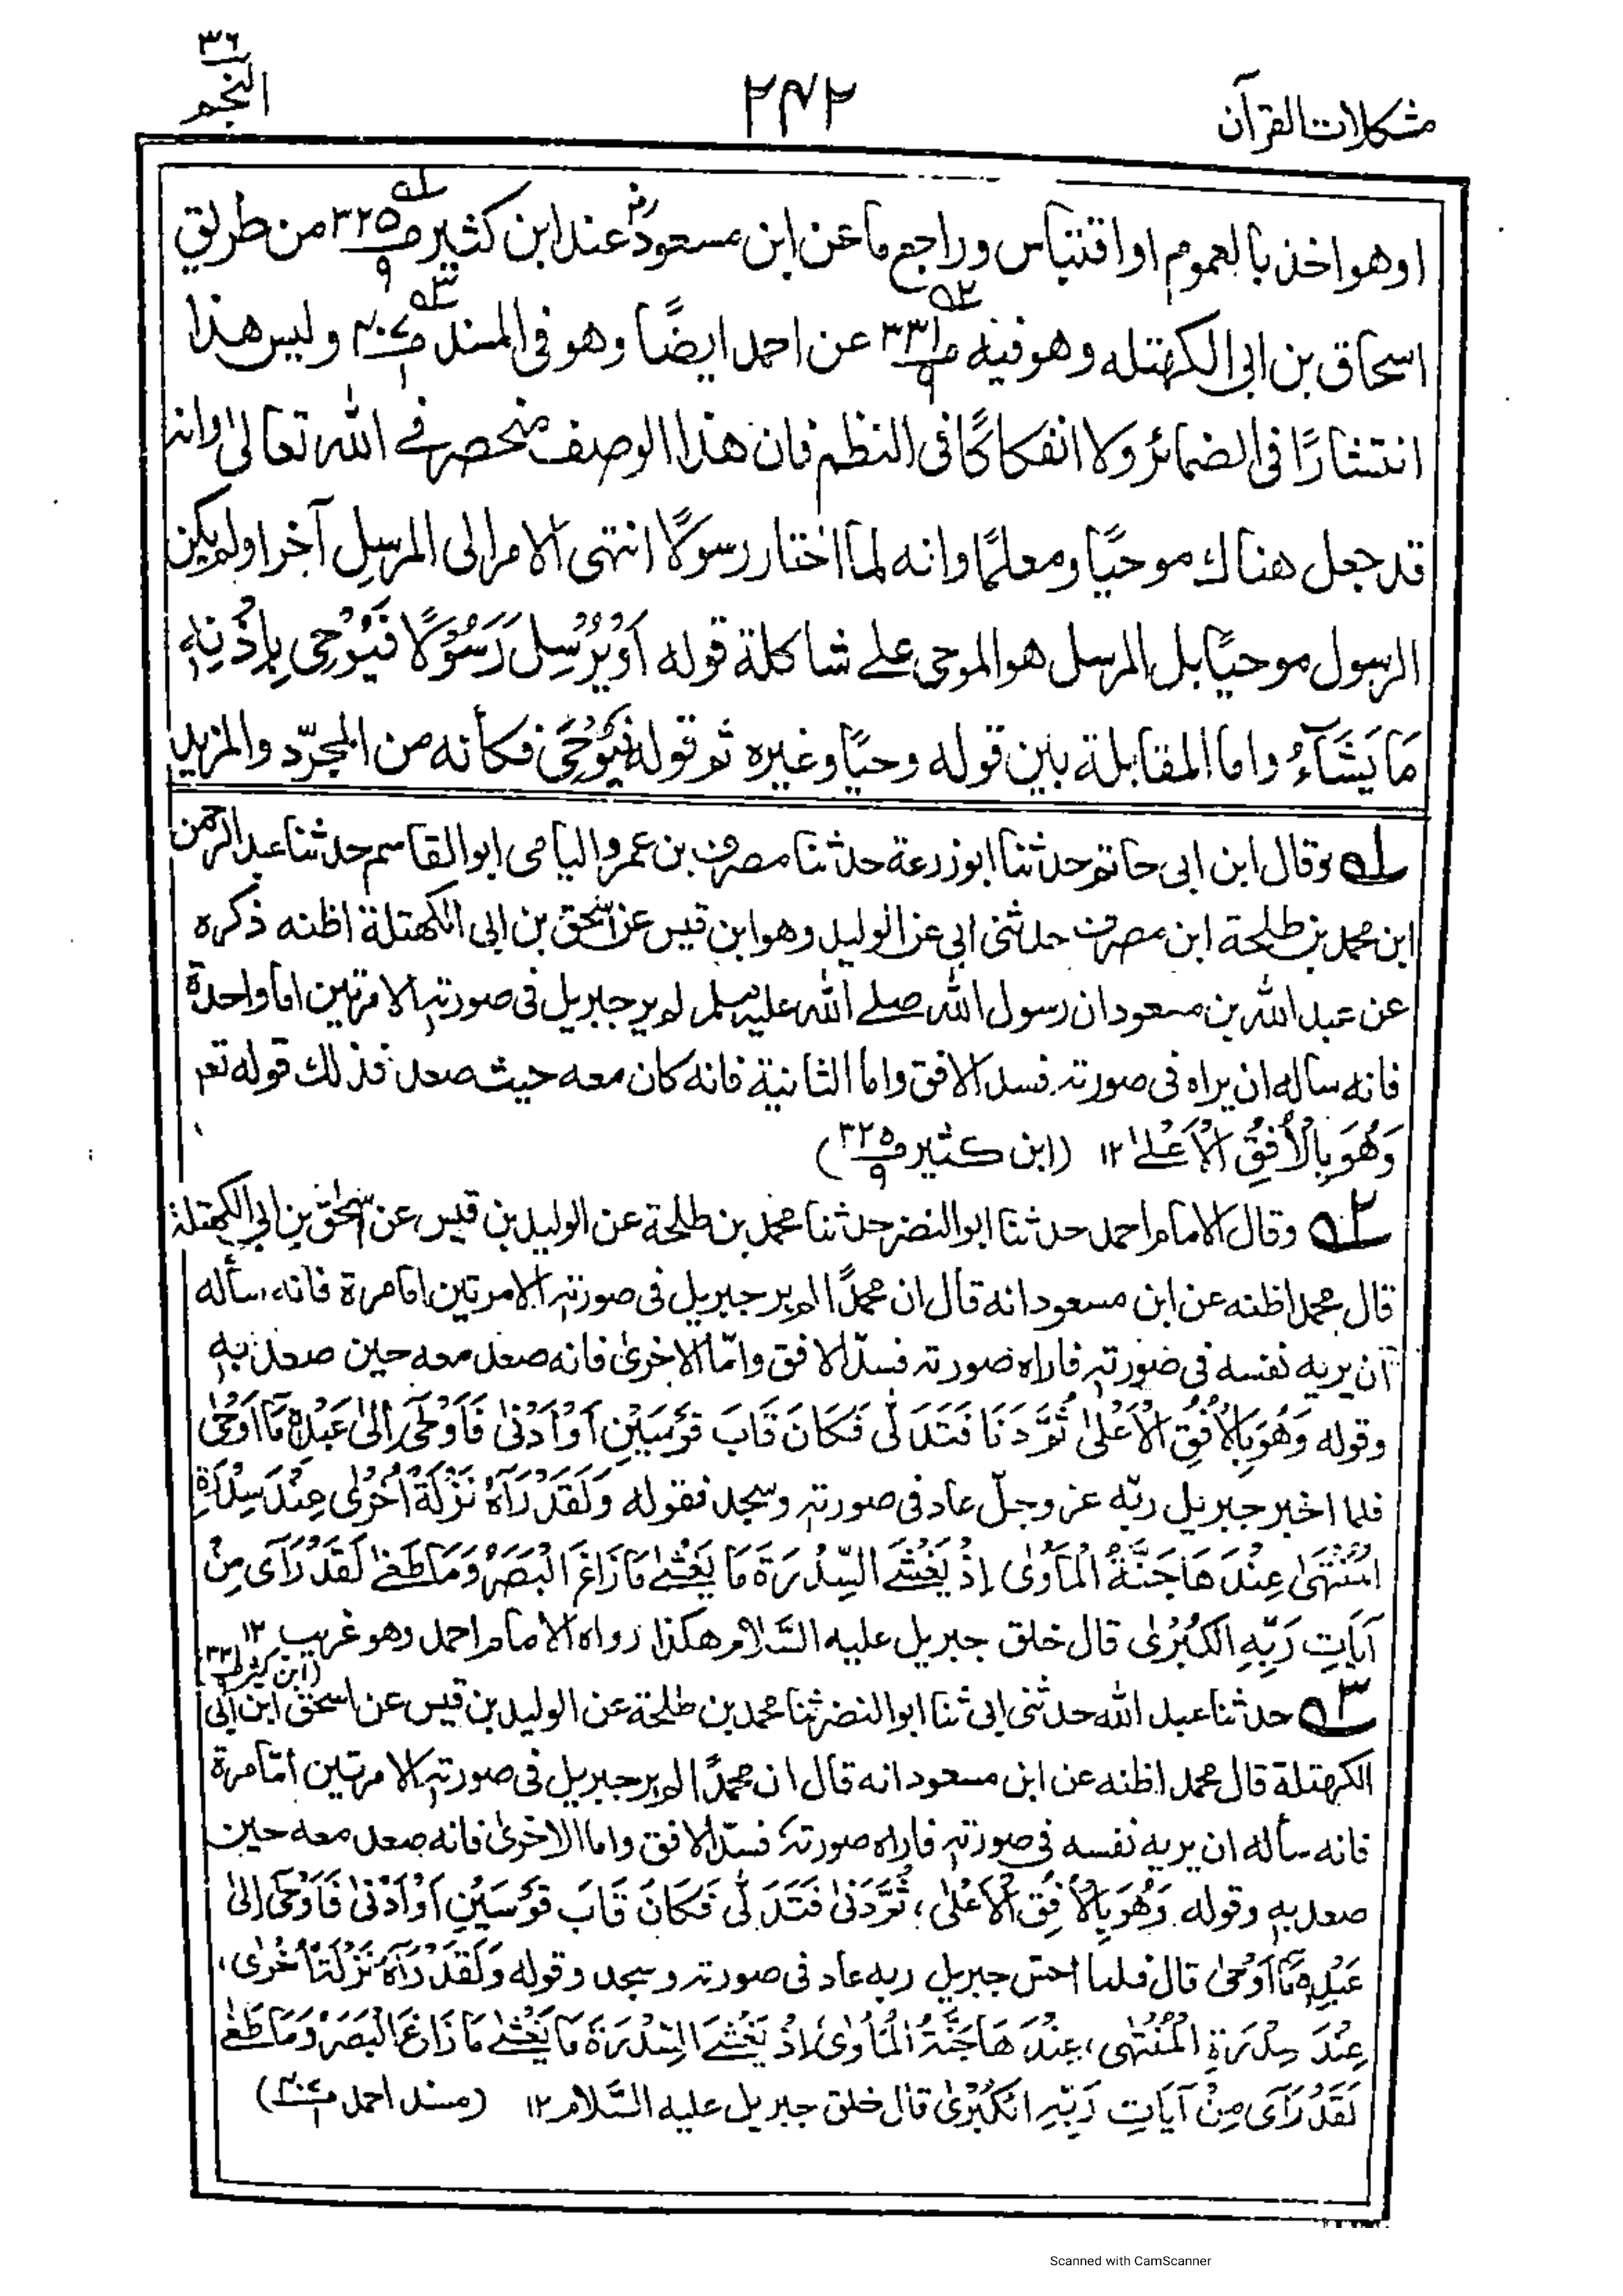 مشكلات القرآن
٢٤٢
٣٦
النجم
او هو اخذ بالعموم او اقتباس وراجع ما عن ابن مسعودؓ عند ابن كثير ص٣٢٥/٩ له من طريق
اسحاق بن ابى الكهتله وهو فيه ص٣٣١/٩ ٢ه عن احمد ايضًا وهو فى المسند ص٤٠٧/١ ٣ه وليس هذا
انتشارًا فى الضمائر ولا انفكاكًا فى النظم فان هذا الوصف منحصر فے الله تعالىٰ وانه
قد جعل هناك موحيًا ومعلمًا وانه لما اختار رسولًا انتهى الامر الى المرسِل آخرا ولم يكن
الرسول موحيًا بل المرسل هو الموحى علے شاكلة قوله اَوْ يُرْسِلَ رَسُوْلًا فَيُوْحِىَ بِاِذْنِهٖ
مَا يَشَآءُ واما المقابلة بين قوله وحيًا وغيره ثم قوله فَيُوْحِىَ فكأنه من المجرّد والمزيد
له وقال ابن ابى حاتم حدثنا ابو زرعة حدثنا مصرف بن عمرو اليامى ابو القاسم حدثنا عبد الرحمن
ابن محمد بن طلحة ابن مصرف حدثنى ابى عن الوليد وهو ابن قيس عن اسحٰق بن ابى الكهتلة اظنه ذكره
عن عبد الله بن مسعود ان رسول الله صلے الله عليه وسلم لم ير جبريل فى صورته الا مرتين اما واحدة
فانه ساله ان يراه فى صورته فسد الافق واما الثانية فانه كان معه حيث صعد فذلك قوله تعم
وَهُوَ بِالْاُفُقِ الْاَعْلےٰ ١٢ (ابن كثير ص٣٢٥/٩)
٢ه وقال الامام احمد حدثنا ابو النضر حدثنا محمد بن طلحة عن الوليد بن قيس عن اسحٰق بن ابى الكهتلة
قال محمد اظنه عن ابن مسعود انه قال ان محمدًا لم ير جبريل فى صورته الا مرتين اما مرة فانه سأله
ان يريه نفسه فى صورته فاراه صورته فسدّ الافق وامّا الاخرىٰ فانه صعد معه حين صعد به
وقوله وَهُوَ بِالْاُفُقِ الْاَعْلىٰ ثُمَّ دَنَا فَتَدَلّٰى فَكَانَ قَابَ قَوْسَيْنِ اَوْ اَدْنىٰ فَاَوْحىٰ اِلىٰ عَبْدِهٖ مَا اَوْحىٰ
فلما اخبر جبريل ربّه عز وجلّ عاد فى صورته وسجد فقوله وَلَقَدْ رَآهُ نَزْلَةً اُخْرٰى عِنْدَ سِدْرَةِ
الْمُنْتَهىٰ عِنْدَهَا جَنَّةُ الْمَأْوٰى اِذْ يَغْشَے السِّدْرَةَ مَا يَغْشےٰ مَا زَاغَ الْبَصَرُ وَمَا طَغےٰ لَقَدْ رَآى مِنْ
آيَاتِ رَبِّهِ الْكُبْرٰى قال خلق جبريل عليه السَّلام هكذا رواه الامام احمد وهو غريب ١٢
(ابن كثير ص٣٣١)
٣ه حدثنا عبد الله حدثنى ابى ثنا ابو النضر ثنا محمد بن طلحة عن الوليد بن قيس عن اسحٰق ابن ابى
الكهتلة قال محمد اظنه عن ابن مسعود انه قال ان محمدًا لم ير جبريل فى صورته الا مرتين امّا مرة
فانه سأله ان يريه نفسه فى صورته فاراه صورته فسدّ الافق واما الاخرىٰ فانه صعد معه حين
صعد به وقوله وَهُوَ بِالْاُفُقِ الْاَعْلىٰ، ثُمَّ دَنىٰ فَتَدَلّٰى فَكَانَ قَابَ قَوْسَيْنِ اَوْ اَدْنىٰ فَاَوْحىٰ اِلىٰ
عَبْدِهٖ مَا اَوْحىٰ قال فلما احسّ جبريل ربه عاد فى صورته وسجد وقوله وَلَقَدْ رَآهُ نَزْلَةً اُخْرٰى،
عِنْدَ سِدْرَةِ الْمُنْتَهٰى، عِنْدَهَا جَنَّةُ الْمَأْوٰى اِذْ يَغْشَے السِّدْرَةَ مَا يَغْشےٰ مَا زَاغَ الْبَصَرُ وَمَا طَغےٰ
لَقَدْ رَآى مِنْ آيَاتِ رَبِّهِ الْكُبْرٰى قال خلق جبريل عليه السَّلام ١٢ (مسند احمد ص٤٠٧/١)
Scanned with CamScanner